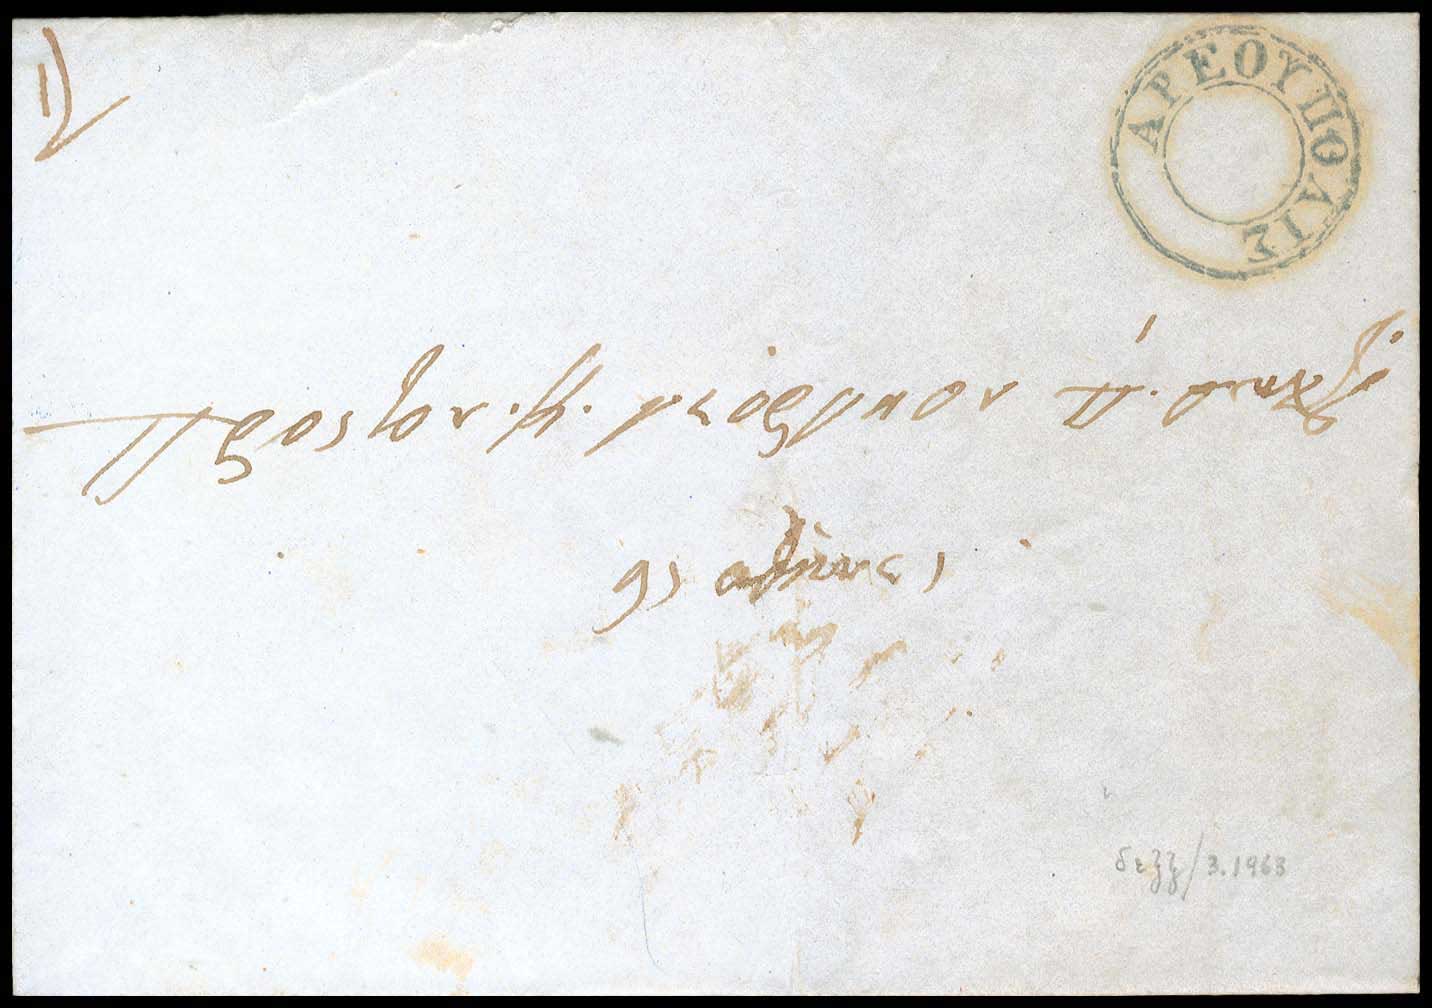 1)
ΑΡΕΟΥΠΟΛΙΣ
Προς τον. Κ. γεόργηον π.
ης αθηνας
δεζζ/3.1963